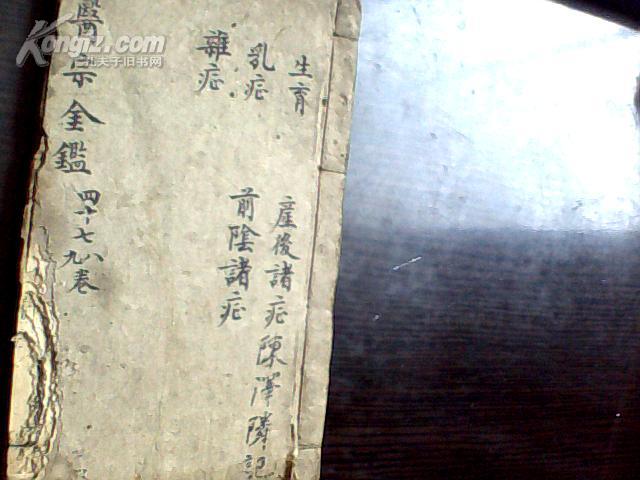 生育
乳症
雜症
產後諸症陳澤隣記
前陰諸症
醫宗金鑑
四十七八九卷
Kongfz.com
孔夫子旧书网